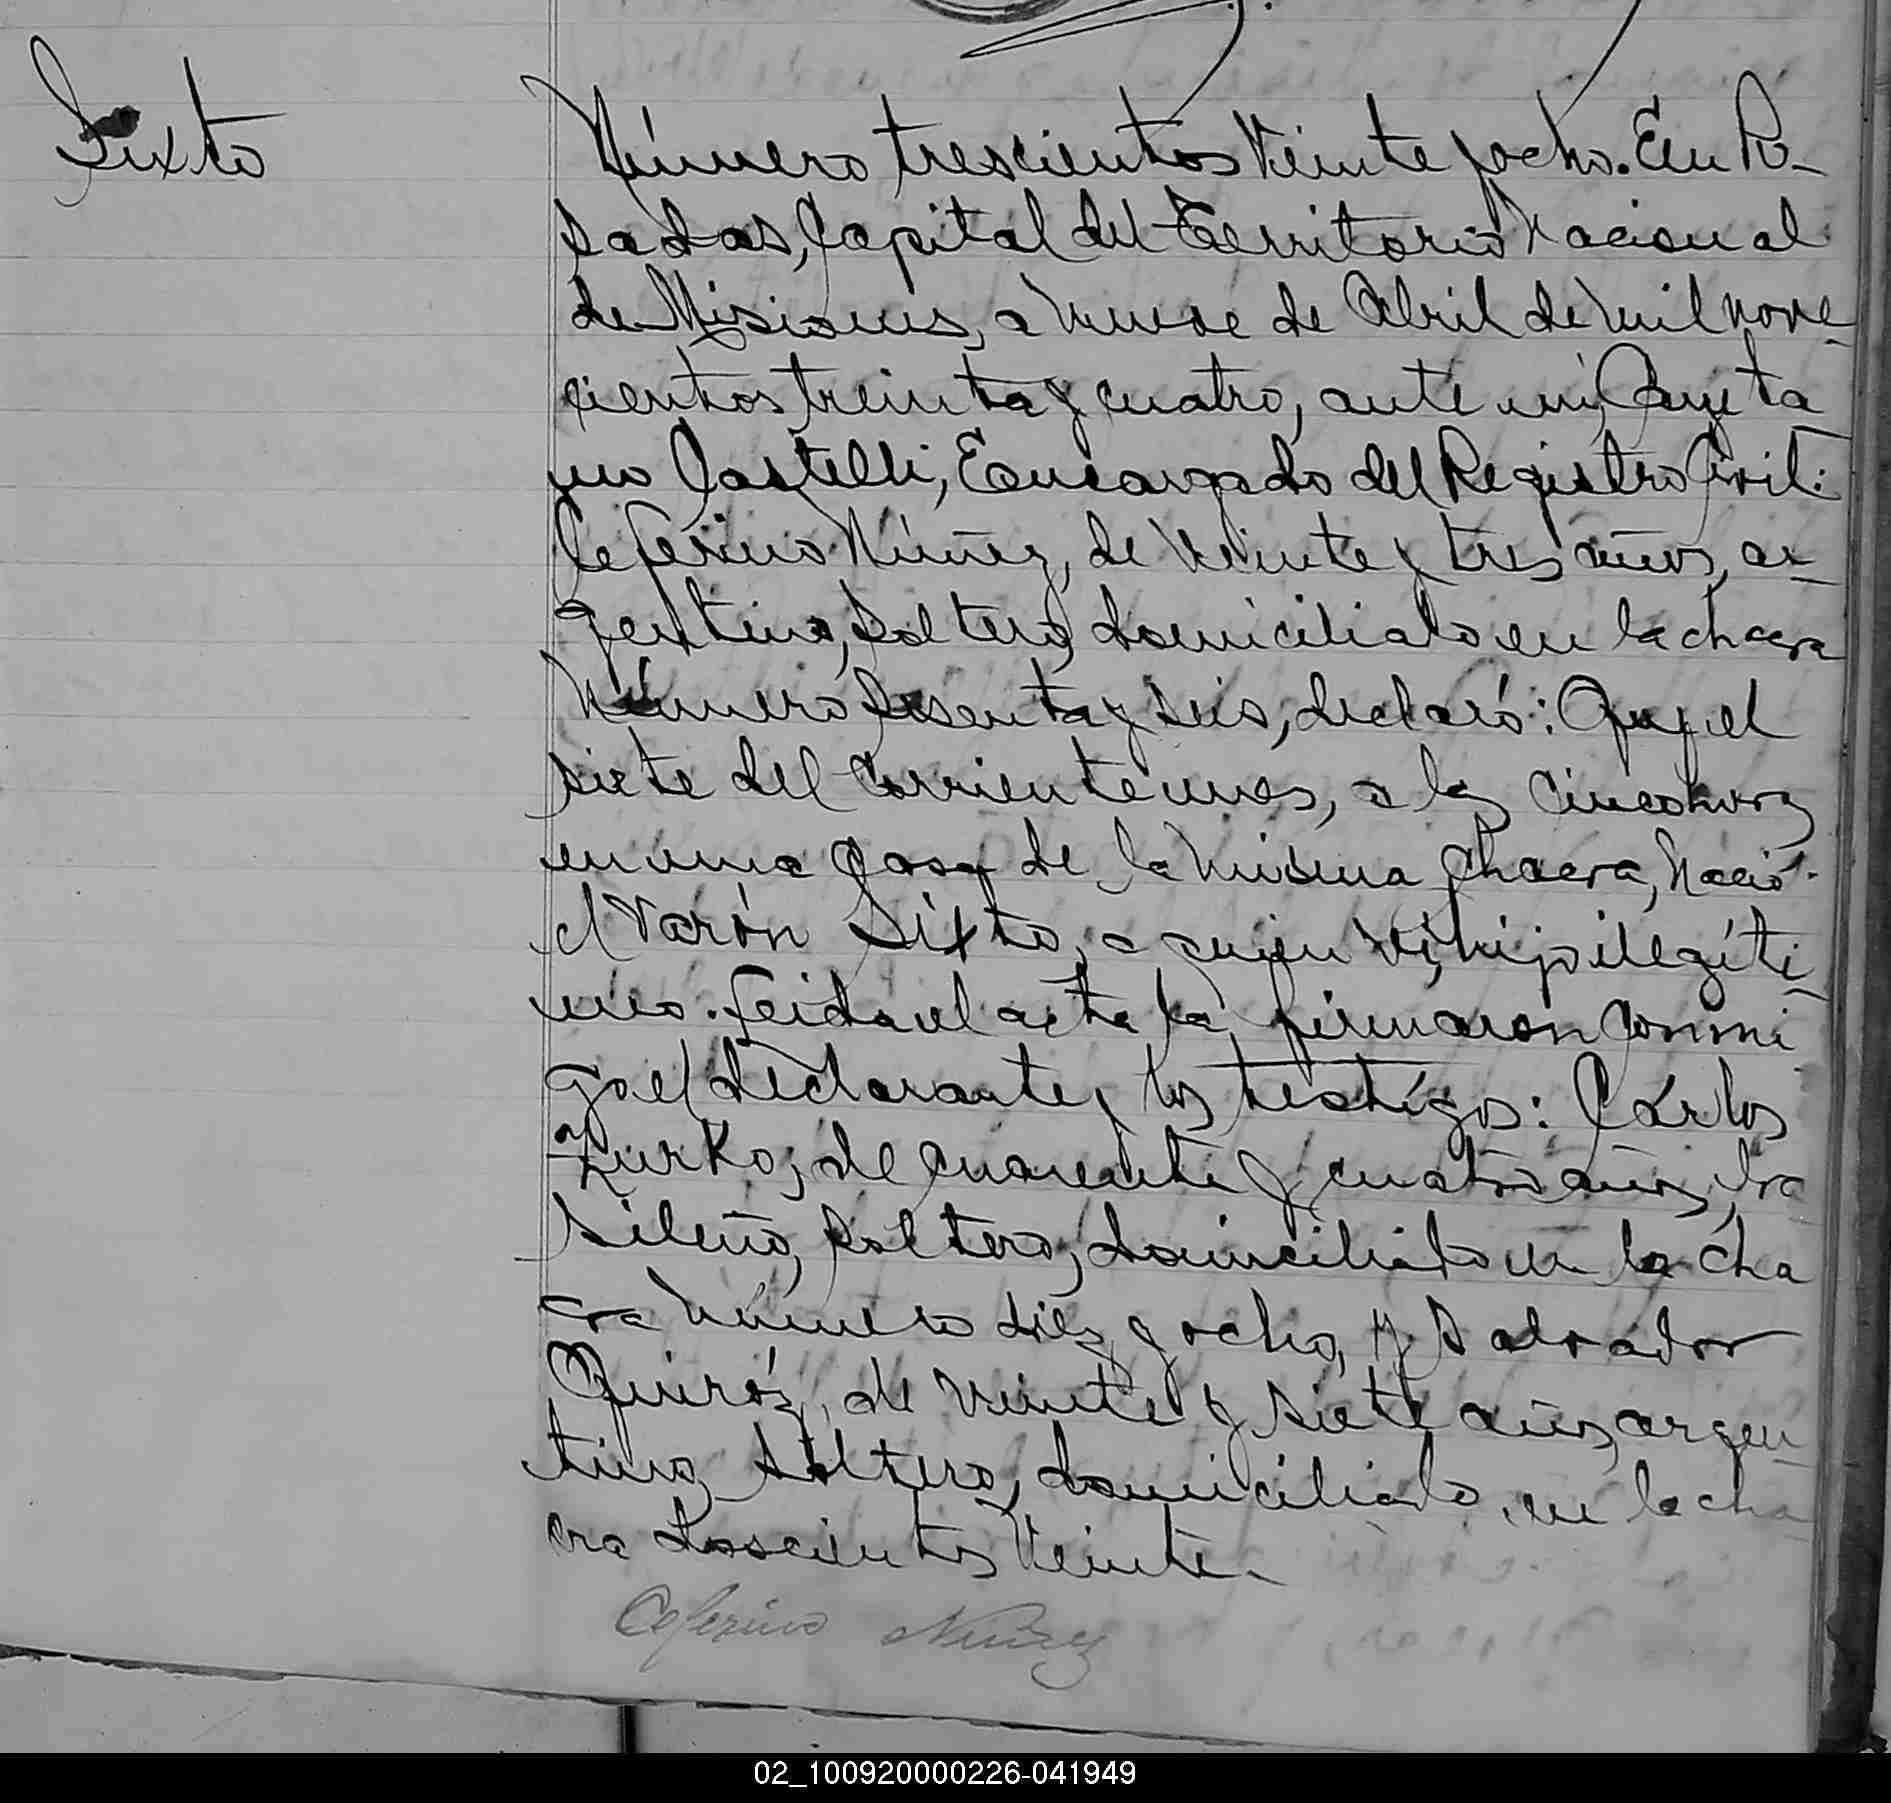 Sixto
Número trescientos veinte y ocho. En Po-
sadas, Capital del Territorio Nacional
de Misiones, a nueve de Abril de mil nove-
cientos treinta y cuatro, ante mí, Cayeta
no Castelli, Encargado del Registro Civil:
Ceferino Núñez, de veinte y tres años, ar-
gentino, soltero, domiciliado en la chacra
número sesenta y seis, declaró: Que, el
siete del corriente mes, a las cinco horas
en una casa de la misma chacra, nació
el varón Sixto, a quien ví, hijo ilegíti-
mo. Leida el acta la firmaron conmi
go el declarante y los testigos: Cárlos
Zurko, de cuarenta y cuatro años, bra
sileño, soltero, domiciliado en la cha
cra número diez y ocho, y Salvador
Quiróz, de veinte y siete años, argen-
tino, soltero, domiciliado en la cha-
cra doscientos veinte.-
Ceferino Nuñez
02_100920000226-041949